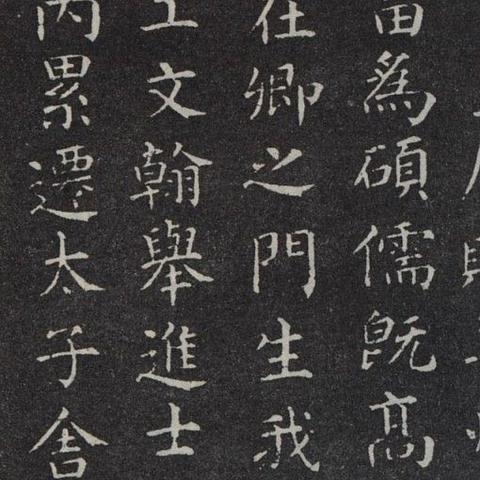 為碩儒既高
在卿之門生我
工文翰舉進士
累遷太子舍